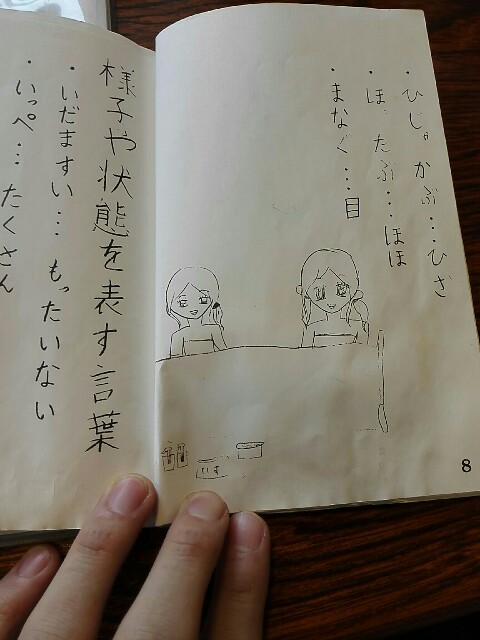 ・ひじゃかぶ…ひざ
・ほったぶ…ほほ
・まなぐ…目
8
様子や状態を表す言葉
・いだますい…もったいない
・いっぺ…たくさん